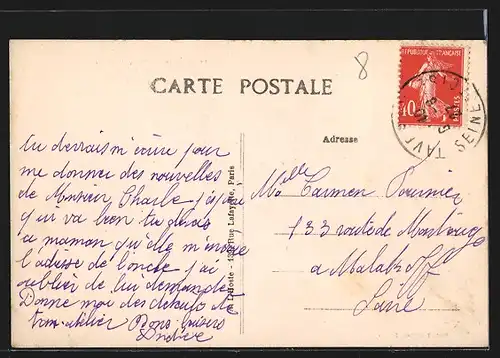 8
REPUBLIQUE FRANÇAISE
40
POSTES
SEINE
CARTE POSTALE
Adresse
Tu devrais m'écrire pour
me donner des nouvelles
de Monsieur Charle j'espère
qu'il va bien tu diras
a maman qu'elle m'envoie
l'adresse de l'oncle j'ai
oublier de lui demander
Donne moi des détails de
ton atelier Bons baisers
Rue Lafayette, Paris
Melle Carmen Fournier
133 route de Montrouge
a Malakoff
Seine